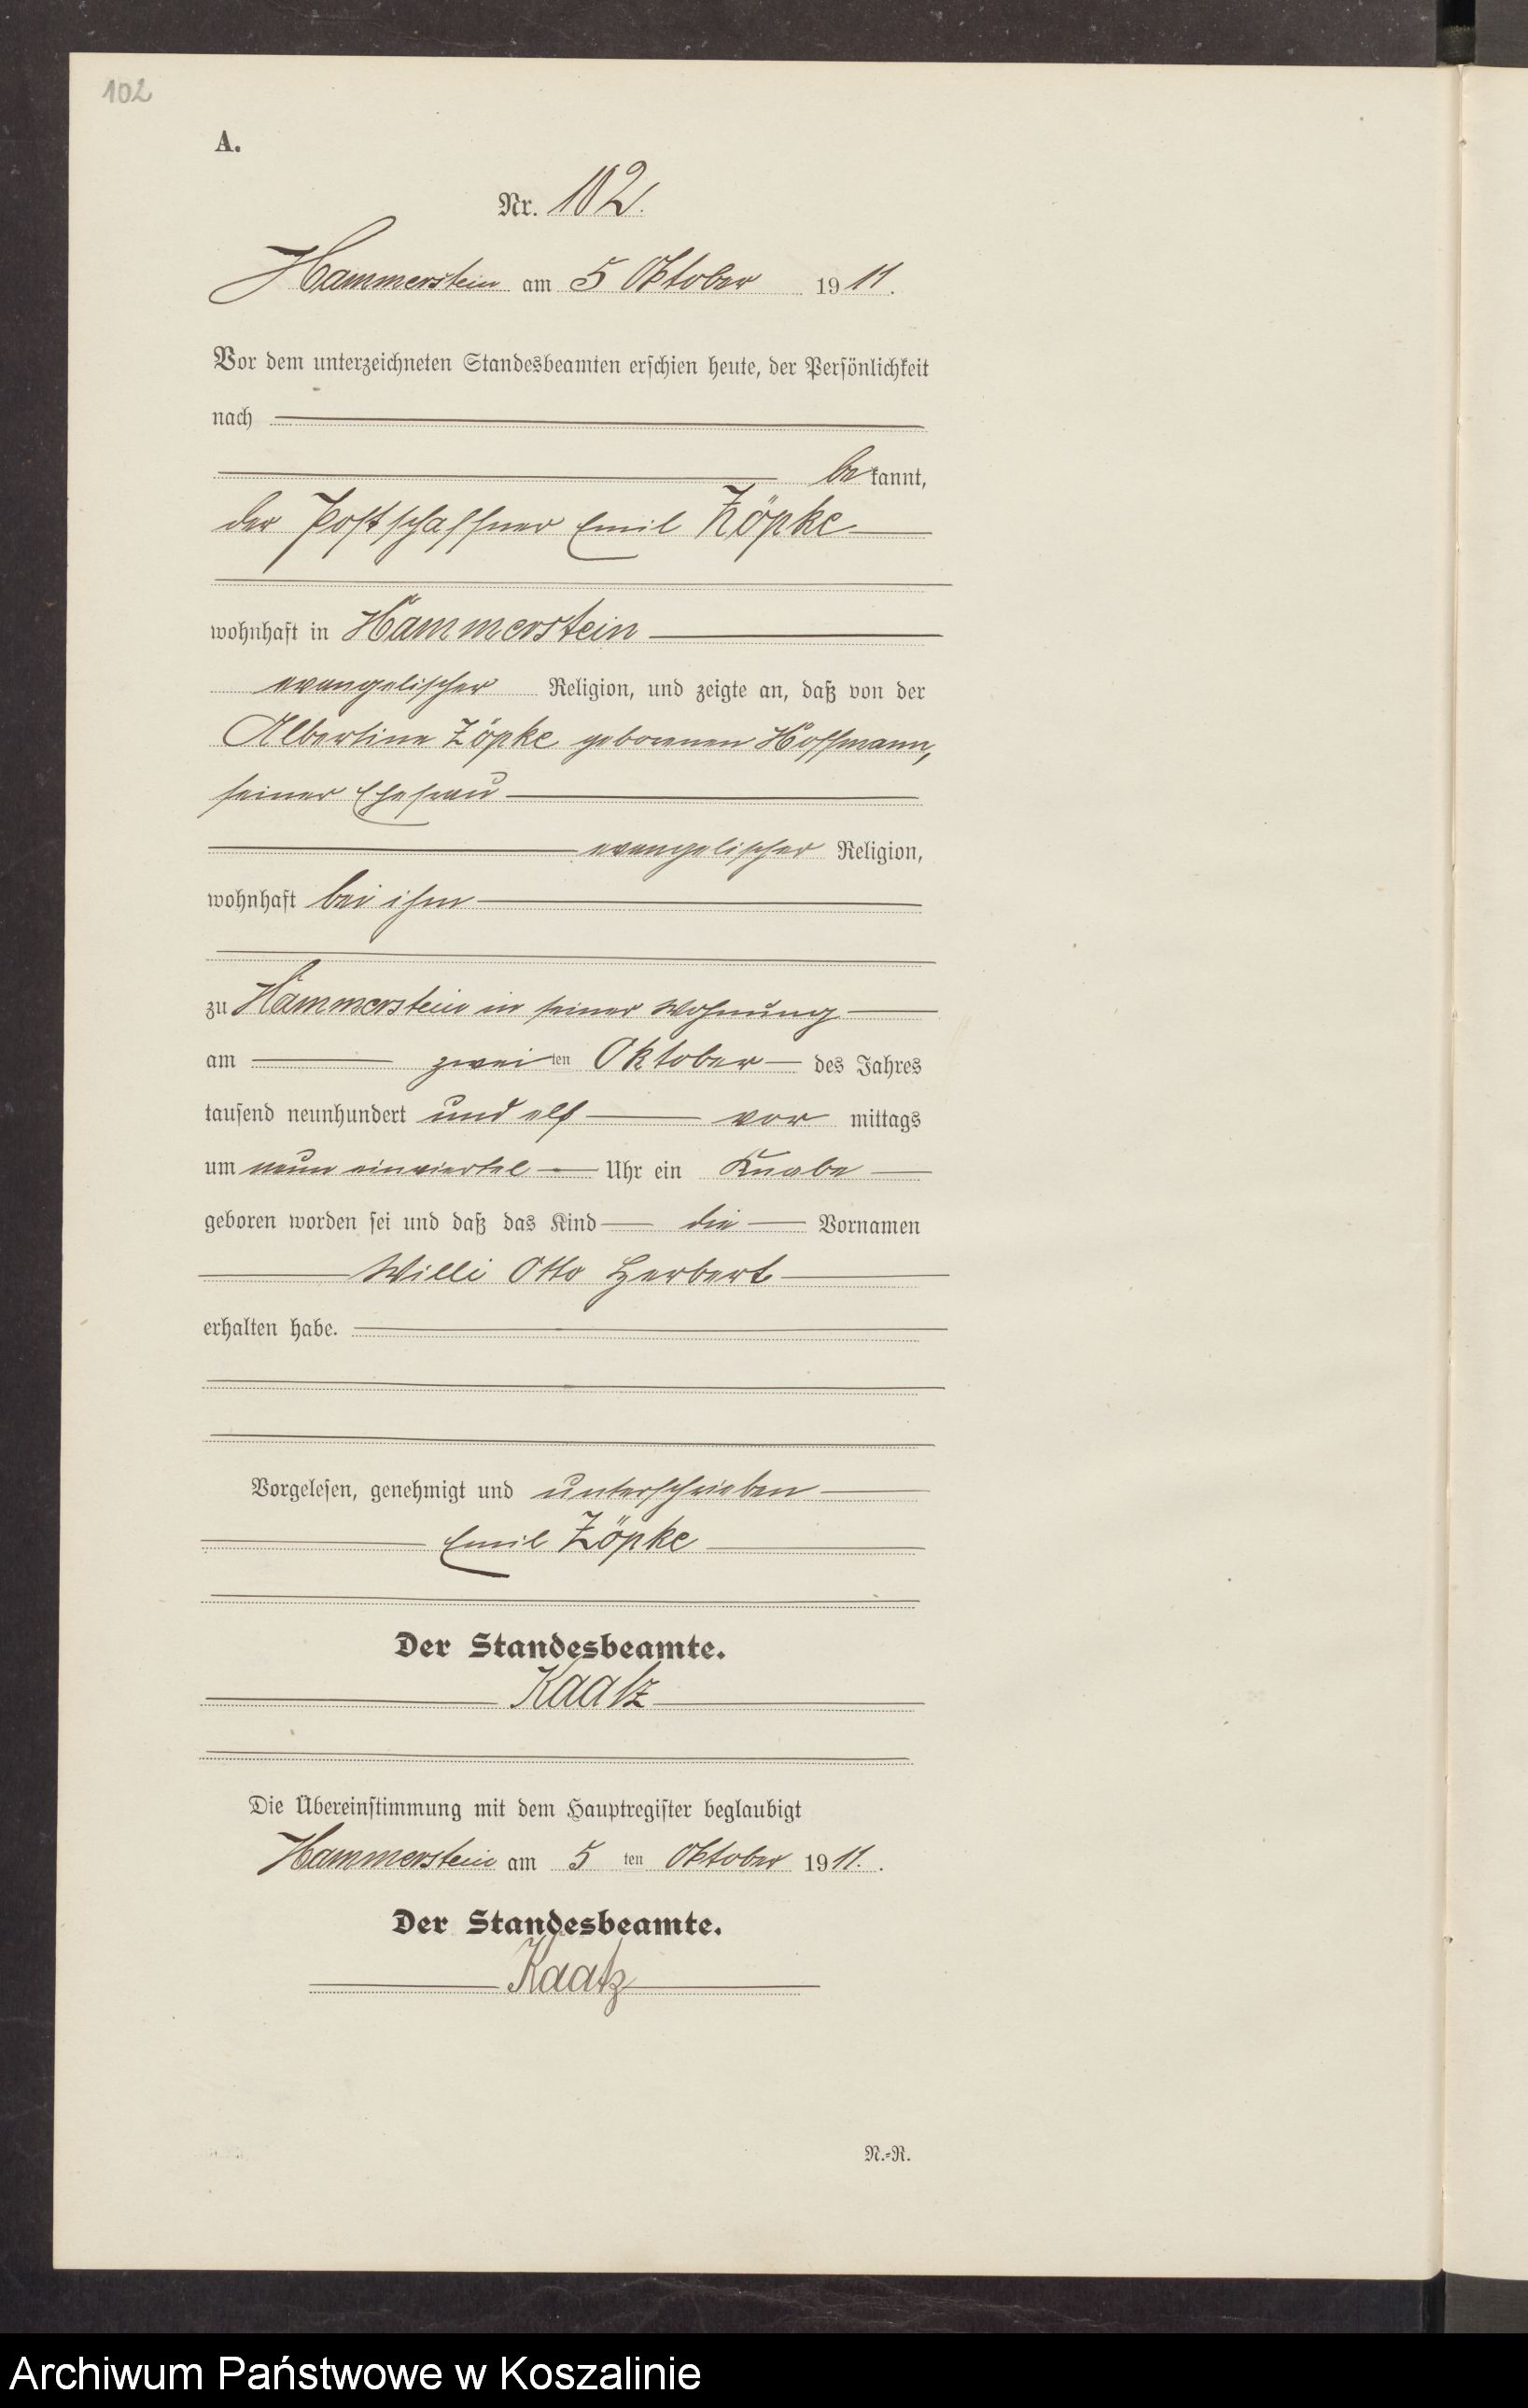 102
A.
Nr. 102.
Hammerstein am 5 Oktober 1911.
Vor dem unterzeichneten Standesbeamten erschien heute, der Persönlichkeit
nach
bekannt,
der Postschaffner Emil Zöpke
wohnhaft in Hammerstein
evangelischer Religion, und zeigte an, daß von der
Albertine Zöpke geborenen Hoffmann,
seiner Ehefrau
evangelischer Religion,
wohnhaft bei ihm
zu Hammerstein in seiner Wohnung
am zweiten Oktober des Jahres
tausend neunhundert und elf vor mittags
um neun einviertel Uhr ein Knabe
geboren worden sei und daß das Kind die Vornamen
Willi Otto Herbert
erhalten habe.
Vorgelesen, genehmigt und unterschrieben
Emil Zöpke
Der Standesbeamte.
Kaatz
Die Übereinstimmung mit dem Hauptregister beglaubigt
Hammerstein am 5 ten Oktober 1911.
Der Standesbeamte.
Kaatz
N.=R.
Archiwum Państwowe w Koszalinie